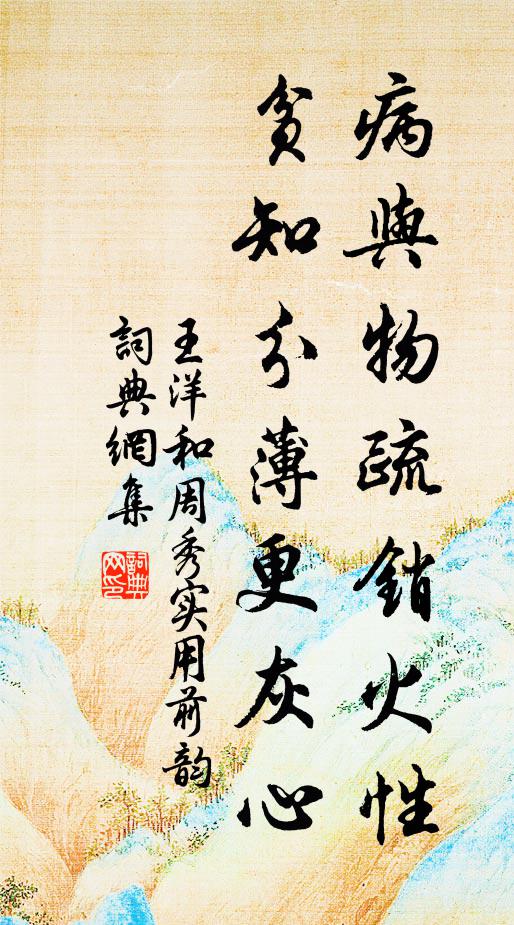 病與物疏銷火性
貧知分薄更灰心
王洋和周秀实用前韵
詞典網集
詞典網印